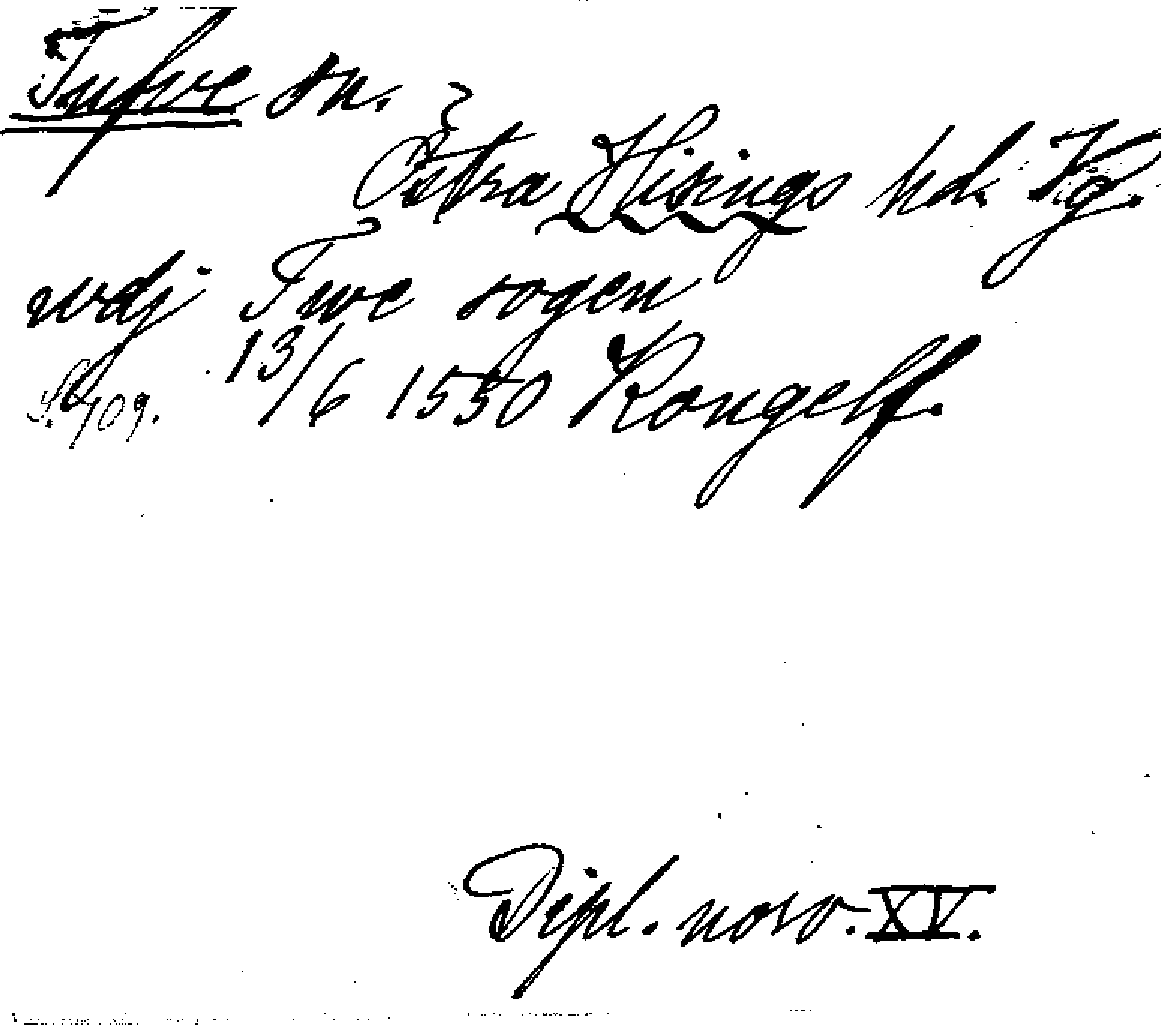 Tufve sn.
Östra Hisings hd. Kg.
wdj Twe sogen
S. 709. 13/6 1550 Kongelf.
Dipl. norv. XV.